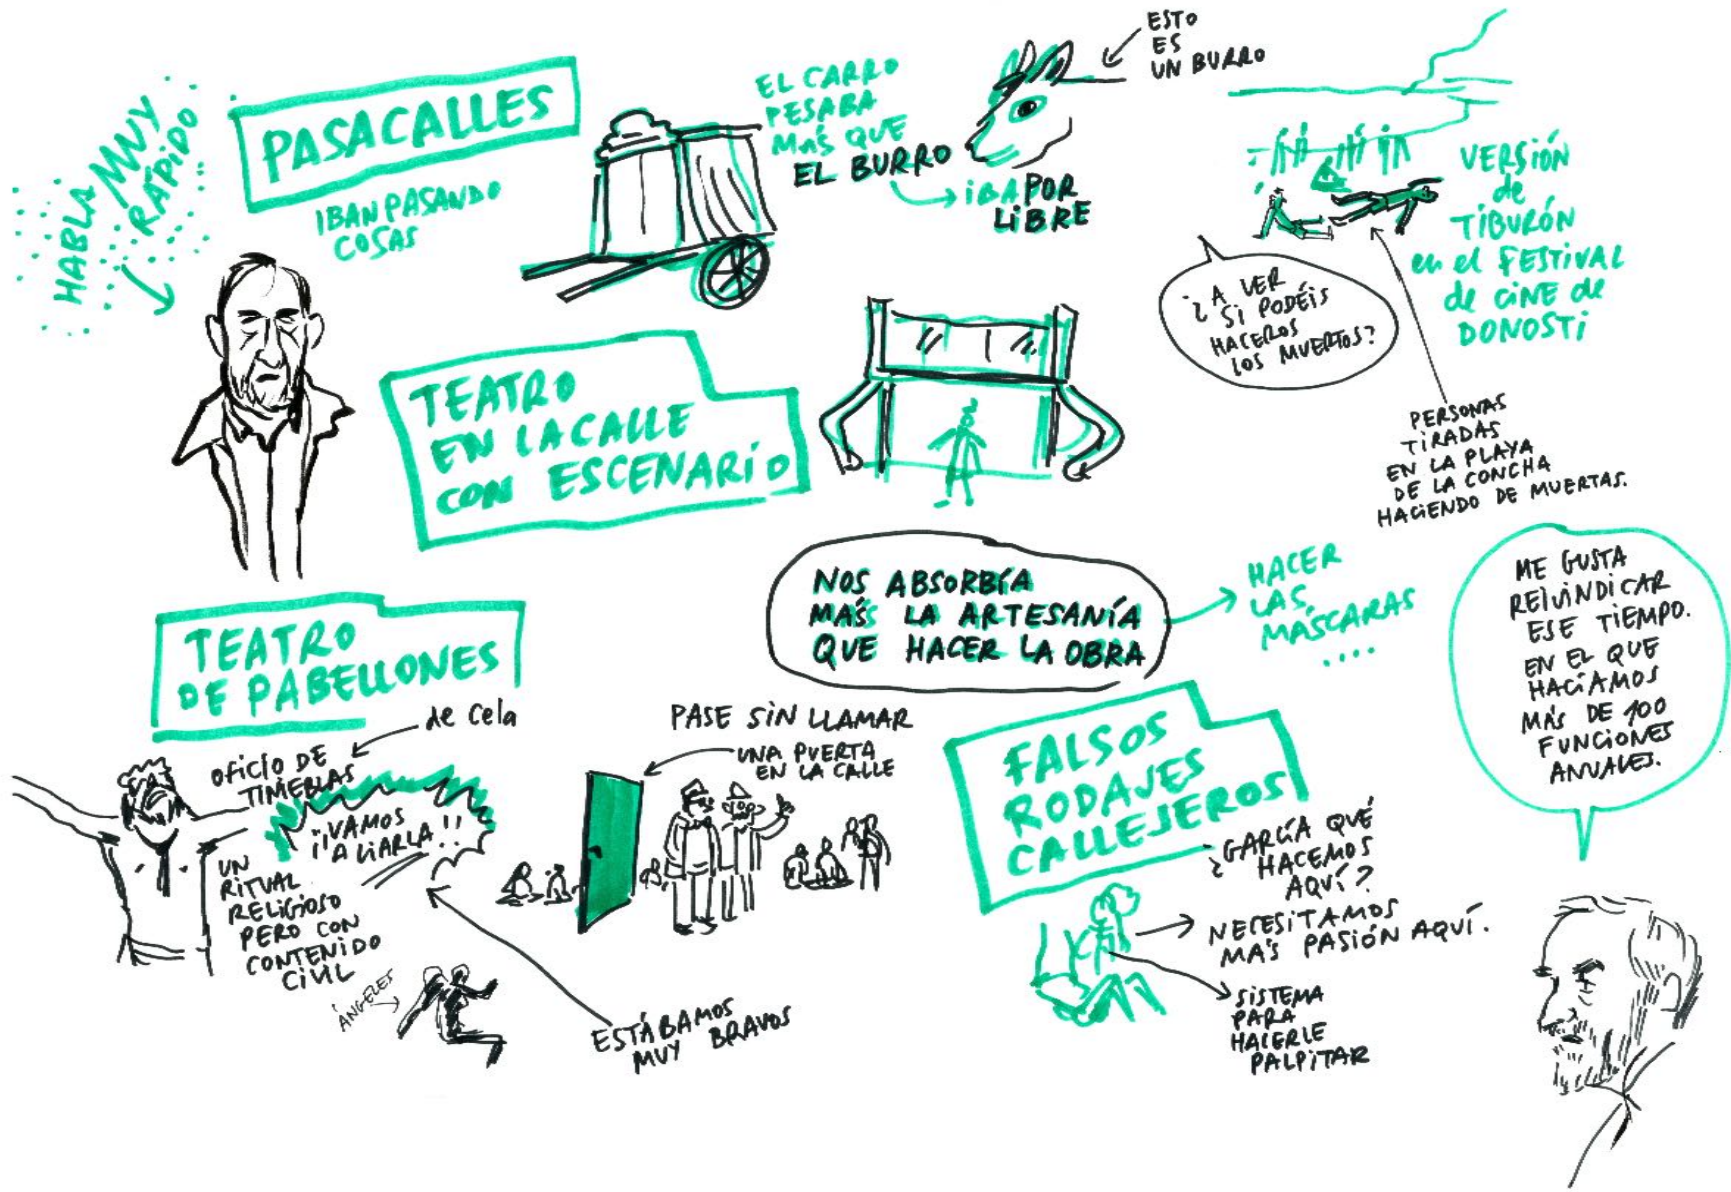 HABLA MUY
RÁPIDO
PASACALLES
IBAN PASANDO
COSAS
EL CARRO
PESABA
MÁS QUE
EL BURRO
IBA POR
LIBRE
ESTO
ES
UN BURRO
VERSIÓN
de
TIBURÓN
en el FESTIVAL
de CINE de
DONOSTI
¿A VER
SI PODÉIS
HACEROS
LOS MUERTOS?
PERSONAS
TIRADAS
EN LA PLAYA
DE LA CONCHA
HACIENDO DE MUERTAS.
TEATRO
EN LA CALLE
CON ESCENARIO
NOS ABSORBÍA
MÁS LA ARTESANÍA
QUE HACER LA OBRA
HACER
LAS
MÁSCARAS
....
ME GUSTA
REIVINDICAR
ESE TIEMPO.
EN EL QUE
HACÍAMOS
MÁS DE 100
FUNCIONES
ANUALES.
TEATRO
DE PABELLONES
de Cela
OFICIO DE
TINIEBLAS
¡¡VAMOS
A LIARLA!!
UN
RITUAL
RELIGIOSO
PERO CON
CONTENIDO
CIVIL
ÁNGELES
ESTÁBAMOS
MUY BRAVOS
PASE SIN LLAMAR
UNA PUERTA
EN LA CALLE
FALSOS
RODAJES
CALLEJEROS
¿GARCÍA QUÉ
HACEMOS
AQUÍ?
NECESITAMOS
MÁS PASIÓN AQUÍ.
SISTEMA
PARA
HACERLE
PALPITAR